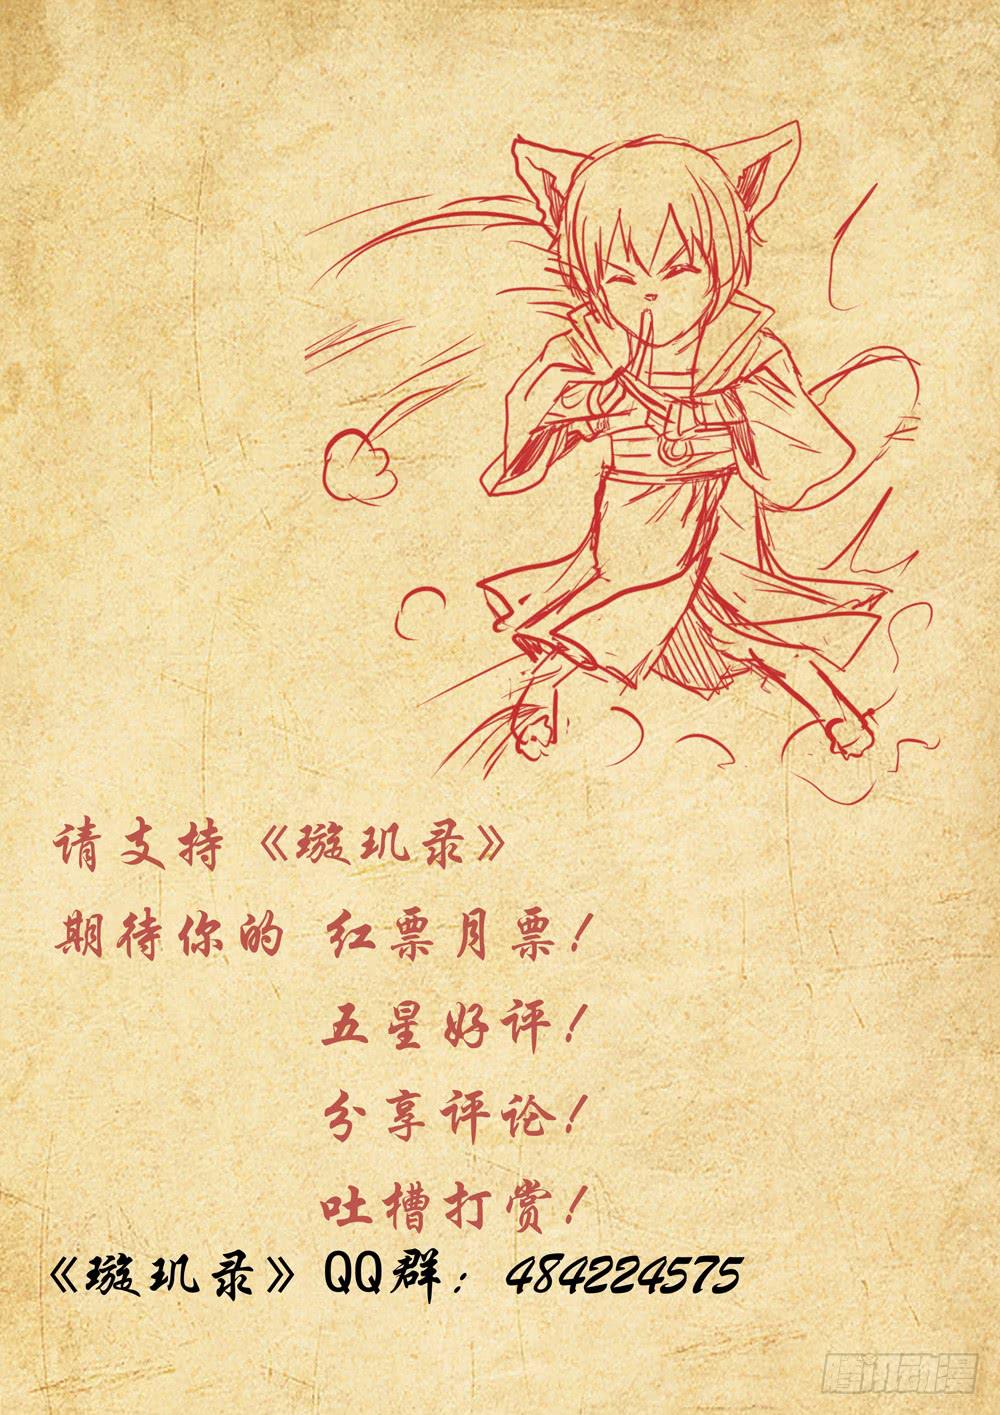 请支持《璇玑录》
期待你的 红票月票！
五星好评！
分享评论！
吐槽打赏！
《璇玑录》QQ群：484224575
腾讯动漫